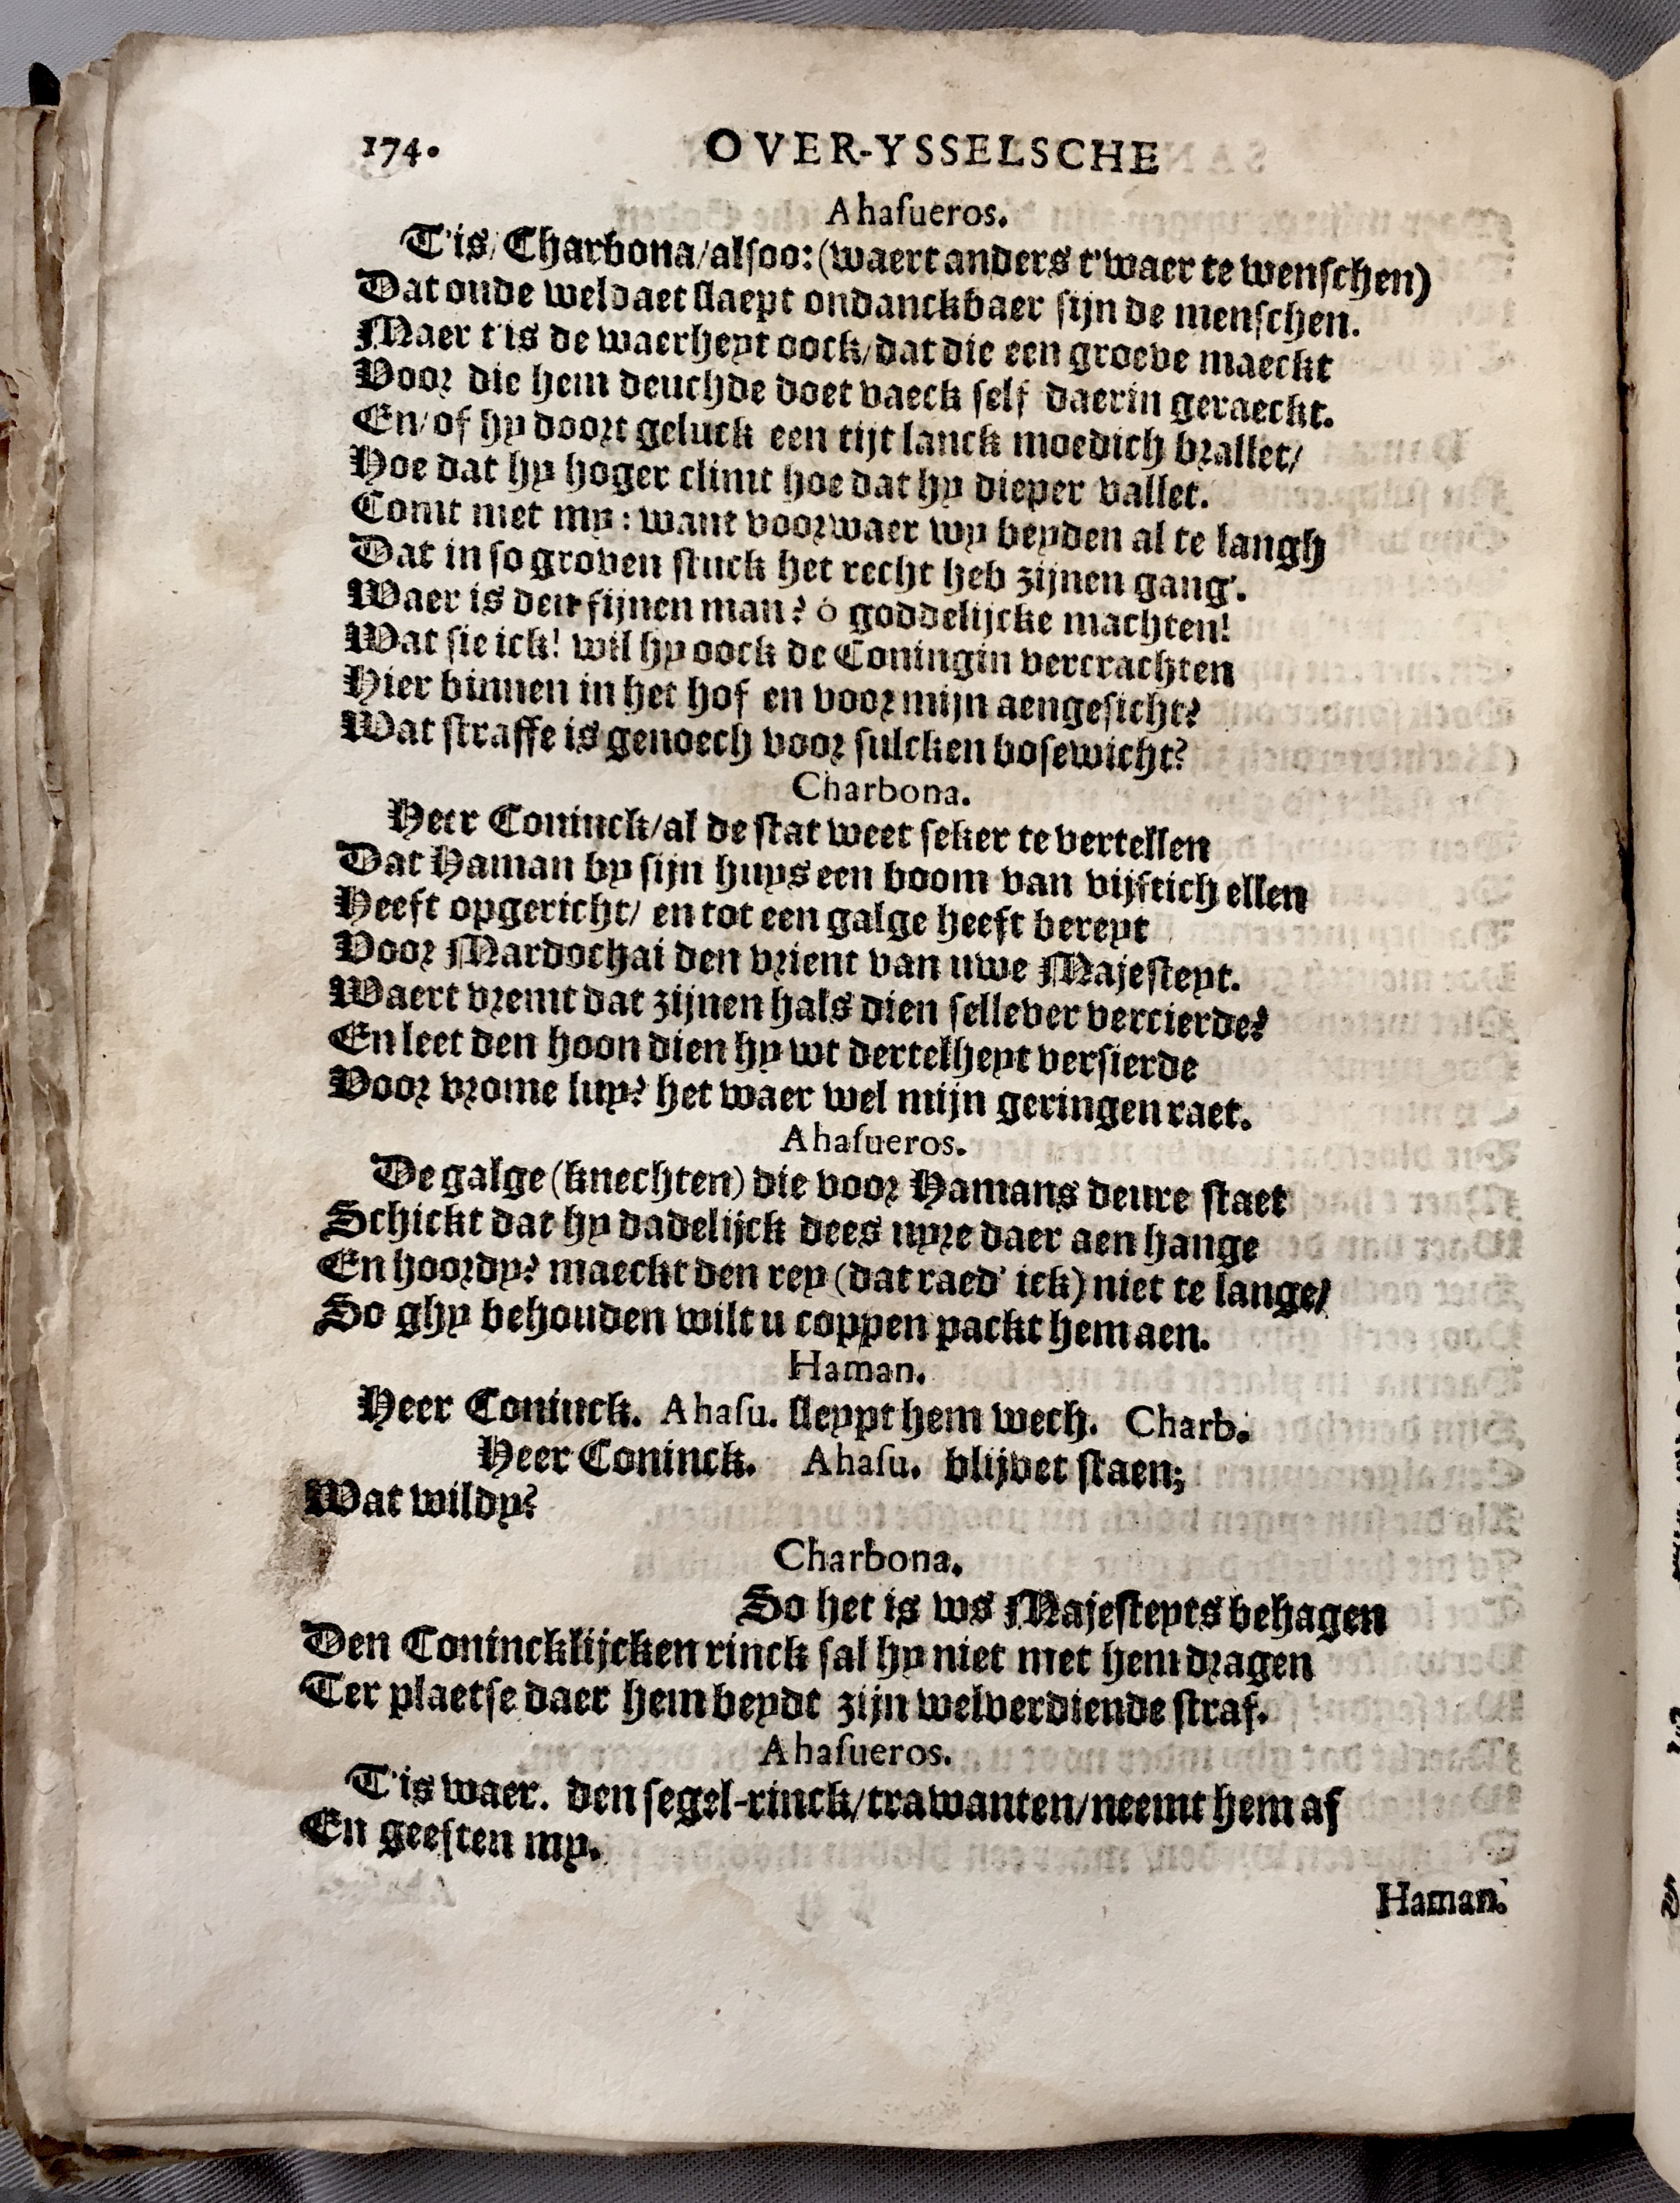 174.
OVER-YSSELSCHE
Ahaſueros.
T'is/ Charbona/alſoo: (waert anders t'waer te wenſchen)
Dat oude weldaet ſlaept ondanckbaer ſijn de menſchen.
Maer t'is de waerheyt oock/dat die een groeve maeckt
Voor die hem deuchde doet vaeck ſelf daerin geraeckt.
En/of hy doort geluck een tijt lanck moedich brallet/
Hoe dat hy hoger climt hoe dat hy dieper vallet.
Comt met my: want voorwaer wy beyden al te langh
Dat in ſo groven ſtuck het recht heb zijnen gang'.
Waer is den fijnen man? ô goddelijcke machten!
Wat ſie ick! wil hy oock de Coningin vercrachten
Hier binnen in het hof en voor mijn aengeſicht?
Wat ſtraffe is genoech voor ſulcken boſewicht?
Charbona.
Heer Coninck/al de ſtat weet ſeker te vertellen
Dat Haman by ſijn huys een boom van vijftich ellen
Heeft opgericht/ en tot een galge heeft bereyt
Voor Mardochai den vrient van uwe Majeſteyt.
Waert vremt dat zijnen hals dien ſellever vercierde?
En leet den hoon dien hy wt dertelheyt verſierde
Voor vrome luy? het waer wel mijn geringen raet.
Ahaſueros.
De galge (knechten) die voor Hamans deure ſtaet
Schickt dat hy dadelijck dees uyre daer aen hange
En hoordy? maeckt den rey (dat raed' ick) niet te lange/
So ghy behouden wilt u coppen packt hem aen.
Haman.
Heer Coninck. Ahaſu. ſleypt hem wech. Charb.
Heer Coninck. Ahaſu. blijvet ſtaen;
Wat wildy?
Charbona.
So het is ws Majeſteyts behagen
Den Conincklijcken rinck ſal hy niet met hem dragen
Ter plaetſe daer hem beydt zijn welverdiende ſtraf.
Ahaſueros.
T'is waer. den ſegel-rinck/trawanten/neemt hem af
En geeften my.
Haman.